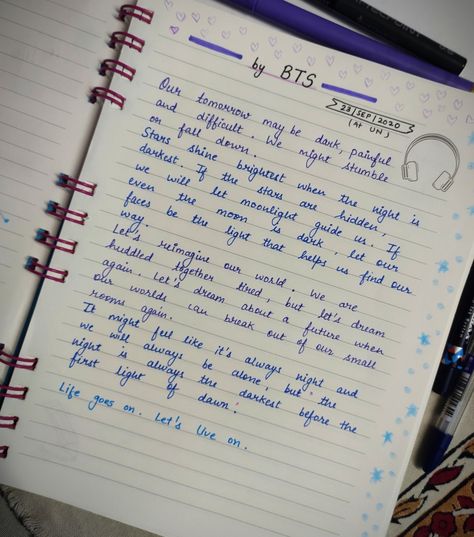 by BTS
23/SEP/2020
(At UN)
Our tomorrow may be dark, painful
and difficult. We might stumble
on fall down.
Stars shine brightest when the night is
darkest. If the stars are hidden,
we will let moonlight guide us. If
even the moon is dark, let our
faces be the light that helps us find our
way.
Let's reimagine our world. We are
huddled together tired, but let's dream
again. Let's dream about a future when
our worlds can break out of our small
rooms again.
It might feel like it's always night and
we will always be alone, but "the
night is always the darkest before the
first light of dawn."
Life goes on. Let's live on.